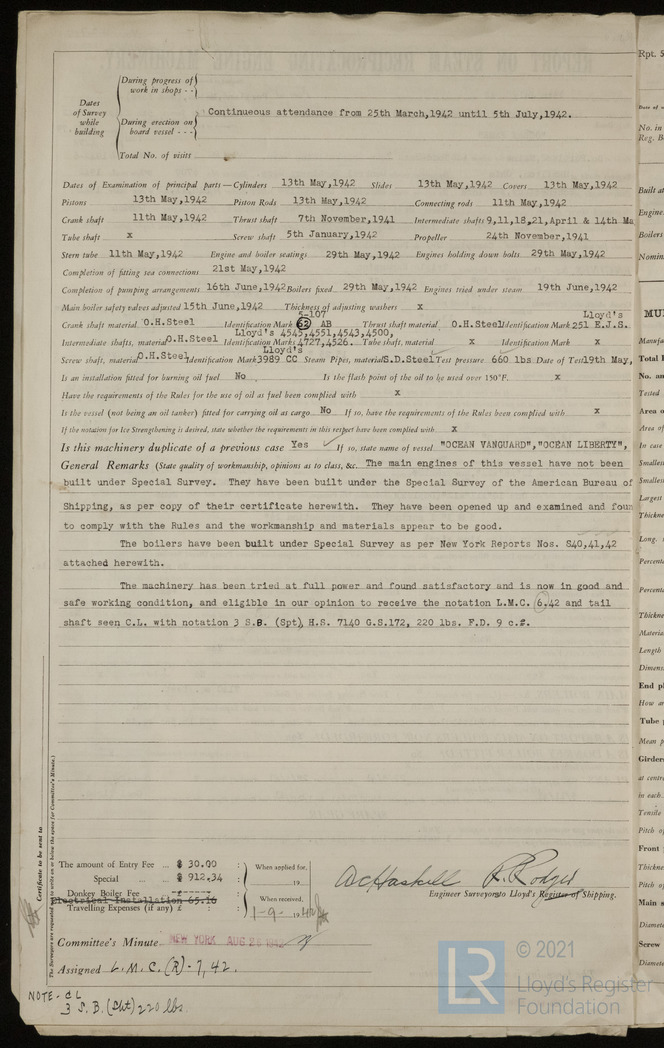 During progress of
work in shops - -
Dates
of Survey
while
building
During erection on
board vessel - - -
Continueous attendance from 25th March,1942 until 5th July,1942.
Total No. of visits
Dates of Examination of principal parts—Cylinders 13th May,1942 Slides 13th May,1942 Covers 13th May,1942
Pistons 13th May,1942 Piston Rods 13th May,1942 Connecting rods 11th May,1942
Crank shaft 11th May,1942 Thrust shaft 7th November,1941 Intermediate shafts 9,11,18,21,April & 14th Ma
Tube shaft x Screw shaft 5th January,1942 Propeller 24th November,1941
Stern tube 11th May,1942 Engine and boiler seatings 29th May,1942 Engines holding down bolts 29th May,1942
Completion of fitting sea connections 21st May,1942
Completion of pumping arrangements 16th June,1942 Boilers fixed 29th May,1942 Engines tried under steam 19th June,1942
Main boiler safety valves adjusted 15th June,1942 Thickness of adjusting washers x
5-107 Lloyd's
Crank shaft material O.H.Steel Identification Mark 62 AB Thrust shaft material O.H.Steel Identification Mark 251 E.J.S.
Lloyd's 4545,4551,4543,4500,
Intermediate shafts, material O.H.Steel Identification Marks 4727,4526. Tube shaft, material x Identification Mark x
Lloyd's
Screw shaft, material O.H.Steel Identification Mark 3989 CC Steam Pipes, material S.D.Steel Test pressure 660 lbs Date of Test 19th May,
Is an installation fitted for burning oil fuel No Is the flash point of the oil to be used over 150°F. x
Have the requirements of the Rules for the use of oil as fuel been complied with x
Is the vessel (not being an oil tanker) fitted for carrying oil as cargo No If so, have the requirements of the Rules been complied with x
If the notation for Ice Strengthening is desired, state whether the requirements in this respect have been complied with x
Is this machinery duplicate of a previous case Yes If so, state name of vessel "OCEAN VANGUARD","OCEAN LIBERTY",
General Remarks (State quality of workmanship, opinions as to class, &c. The main engines of this vessel have not been
built under Special Survey. They have been built under the Special Survey of the American Bureau of
Shipping, as per copy of their certificate herewith. They have been opened up and examined and foun
to comply with the Rules and the workmanship and materials appear to be good.
The boilers have been built under Special Survey as per New York Reports Nos. S40,41,42
attached herewith.
The machinery has been tried at full power and found satisfactory and is now in good and
safe working condition, and eligible in our opinion to receive the notation L.M.C. 6.42 and tail
shaft seen C.L. with notation 3 S.B. (Spt), H.S. 7140 G.S.172, 220 lbs. F.D. 9 c.f.
Certificate to be sent to
(The Surveyors are requested not to write on or below the space for Committee's Minute.)
The amount of Entry Fee ... $ 30.00 :
Special ... $ 912.34 :
Donkey Boiler Fee ... £ :
Electrical Installation 65.16
Travelling Expenses (if any) £ :
When applied for,
19
When received,
1-9- 1942
A C Haskell R. Rodger
Engineer Surveyors to Lloyd's Register of Shipping.
Committee's Minute NEW YORK AUG 26 1942
Assigned L.M.C.(R)-7,42.
NOTE - CL
3 S.B. (Spt) 220 lbs.
Rpt. 5
Date of
No. in
Reg. B
Built at
Engine
Boilers
Nomin
MU
Manufac
Total
No. an
Tested
Area o
Area of
In case
Smalles
Smalles
Largest
Thickne
Long.
Percenta
Percenta
Thickne
Materia
Length
Dimens
End pl
How ar
Tube p
Mean p
Girder
at centre
in each
Tensile
Pitch of
Front
Thickne
Pitch of
Main s
Diamete
Screw
Diamete
© 2021
LR
Lloyd's Register
Foundation